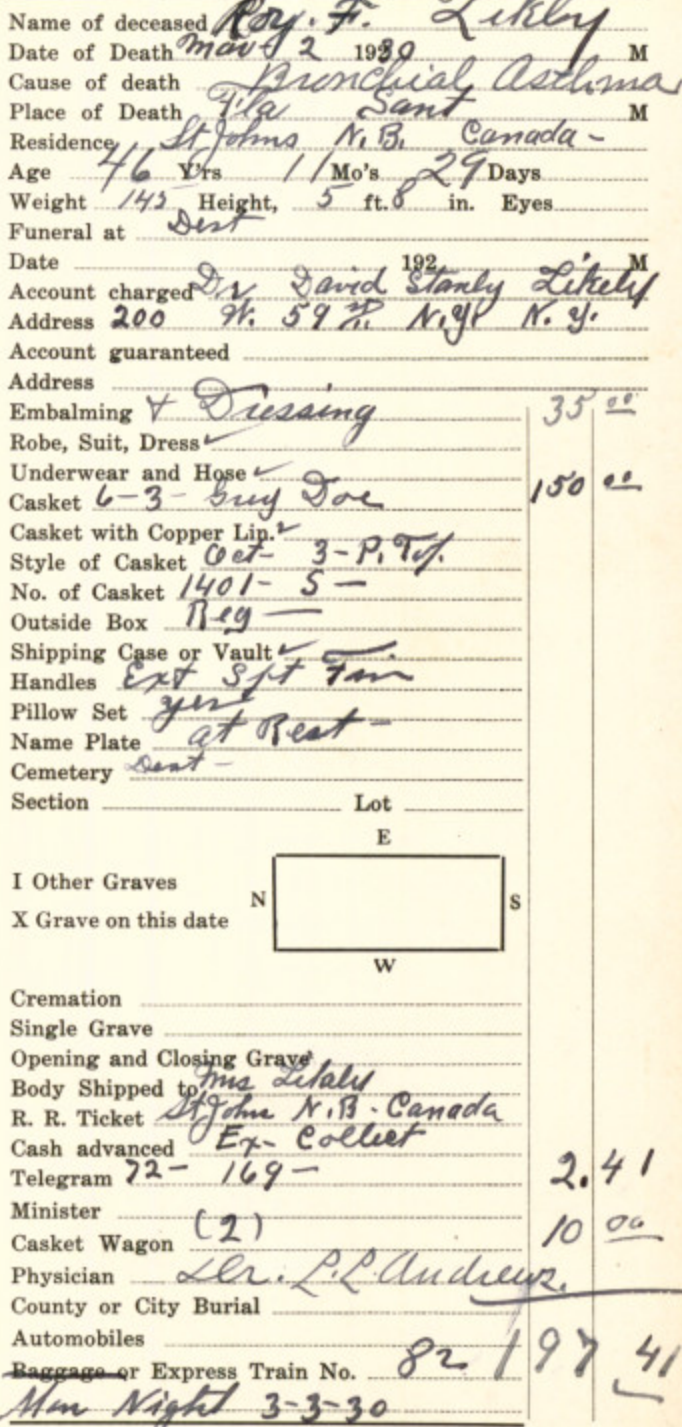 Name of deceased Roy. F. Likely
Date of Death Mar 2 1930 M
Cause of death Bronchial Asthma
Place of Death Fla Sant M
Residence St Johns N.B. Canada -
Age 46 Y'rs 11 Mo's 29 Days
Weight 145 Height, 5 ft. 8 in. Eyes
Funeral at Dest
Date 192 M
Account charged Dr David Stanly Likely
Address 200 W. 59 St. N.Y. N.Y.
Account guaranteed
Address
Embalming & Dressing 35 00
Robe, Suit, Dress ✓
Underwear and Hose ✓
Casket 6-3- Grey Doe 150 00
Casket with Copper Lin. ✓
Style of Casket Oct- 3-P. Top.
No. of Casket 1401- S -
Outside Box Reg -
Shipping Case or Vault ✓
Handles Ext Fin
Pillow Set yes
Name Plate at Rest -
Cemetery Dest -
Section Lot
E
I Other Graves
N S
X Grave on this date
W
Cremation
Single Grave
Opening and Closing Grave
Body Shipped to Mrs Likely
R. R. Ticket St Johns N.B - Canada
Cash advanced Ex- Collect
Telegram 72- 169- 2.41
Minister
Casket Wagon (2) 10 00
Physician Dr. L.L. Andrews.
County or City Burial
Automobiles
197 41
Baggage or Express Train No. 82
Mon Night 3-3-30